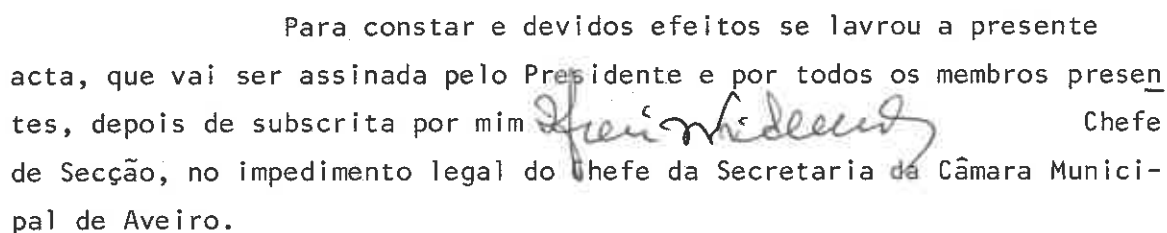 Para constar e devidos efeitos se lavrou a presente
acta, que vai ser assinada pelo Presidente e por todos os membros presen
tes, depois de subscrita por mim Chefe
de Secção, no impedimento legal do Chefe da Secretaria da Câmara Munici-
pal de Aveiro.